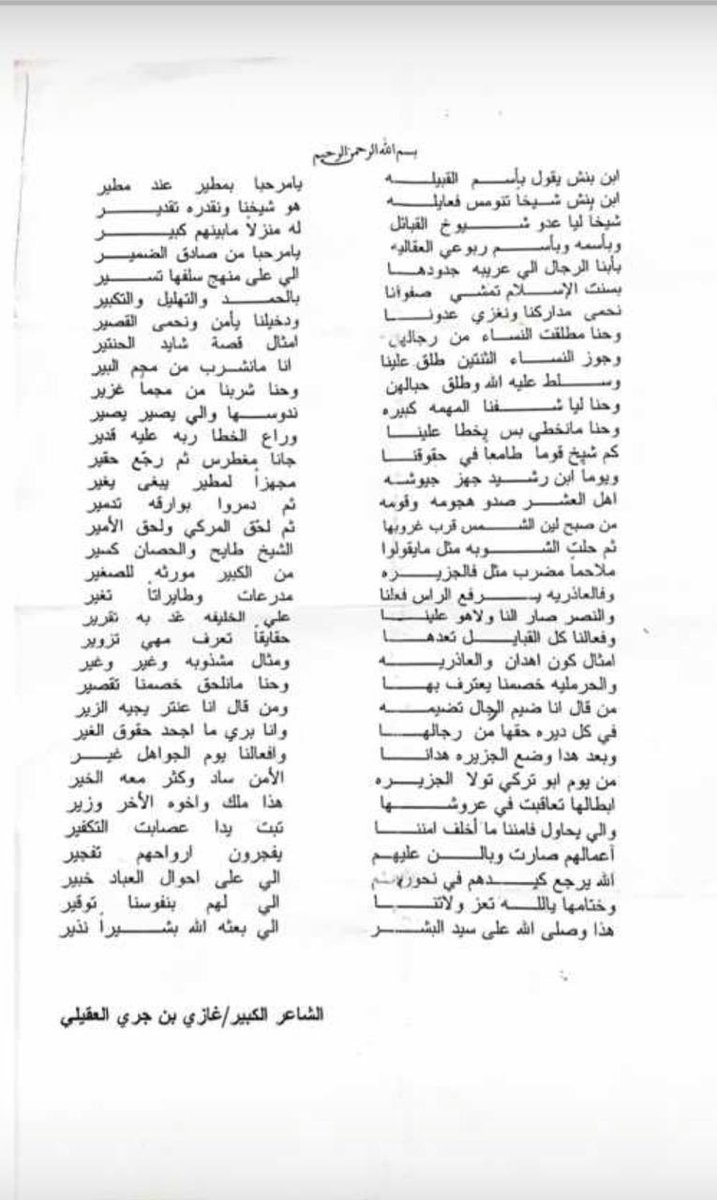 بسم الله الرحمن الرحيم
ابن بنش يقول بأسم القبيله يامرحبا بمطير عند مطير
ابن بنش شيخاً تنومس فعايله هو شيخنا ونقدره تقدير
شيخاً ليا عدو شيوخ القبائل له منزلاً مابينهم كبير
وبأسمه وبأسم ربوعي العقاليه يامرحبا من صادق الضمير
يأبنا الرجال الي عريبه جدودها الي على منهج سلفها تسير
بسنت الإسلام تمشي صفوانا بالحمد والتهليل والتكبير
نحمى مداركنا ونغزي عدونا ودخيلنا يأمن ونحمى القصير
وحنا مطلقت النساء من رجالهن امثال قصة شايد الحنتير
وجوز النساء الثنتين طلق علينا انا مانشرب من مجم البير
وسلط عليه الله وطلق حبالهن وحنا شربنا من مجماً غزير
وحنا ليا شفنا المهمه كبيره ندوسها والي يصير يصير
وحنا مانخطي بس يخطا علينا وراع الخطا ربه عليه قدير
كم شيخ قوماً طامعاً في حقوقنا جانا مغطرس ثم رجع حقير
ويوماً ابن رشيد جهز جيوشه مجهزاً لمطير يبغى يغير
اهل العشر صدو هجومه وقومه ثم دمروا بوارقه تدمير
من صبح لين الشمس قرب غروبها ثم لحق المركي ولحق الأمير
ثم حلت الشوبه مثل مايقولوا الشيخ طايح والحصان كسير
ملاحماً مضرب مثل فالجزيره من الكبير مورثه للصغير
وفالعاذريه يرفع الراس فعلنا مدرعات وطايراتاً تغير
والنصر صار النا ولاهو علينا علي الخليفه غد به تقرير
وفعالنا كل القبايل تعدها حقايقاً تعرف مهي تزوير
امثال كون اهدان والعاذريه ومثال مشذوبه وغير وغير
والحرمليه خصمنا يعترف بها وحنا مانلحق خصمنا تقصير
من قال انا ضيم الرجال تضيمه ومن قال انا عنتر يجيه الزير
في كل ديره حقها من رجالها وانا بري ما اجحد حقوق الغير
وبعد هذا وضع الجزيره هدانا وافعالنا يوم الجواهل غير
من يوم ابو تركي تولا الجزيره الأمن ساد وكثر معه الخير
ابطالها تعاقبت في عروشها هذا ملك واخوه الأخر وزير
والي يحاول فامننا ما أخلف امننا تبت يدا عصابت التكفير
أعمالهم صارت وبالن عليهم يفجرون ارواحهم تفجير
الله يرجع كيدهم في الي على احوال العباد خبير
وختامها ياالله تعز ولاتنا الي لهم بنفوسنا توقير
هذا وصلى الله على سيد البشر الي بعثه الله بشيراً نذير
الشاعر الكبير/غازي بن جري العقيلي